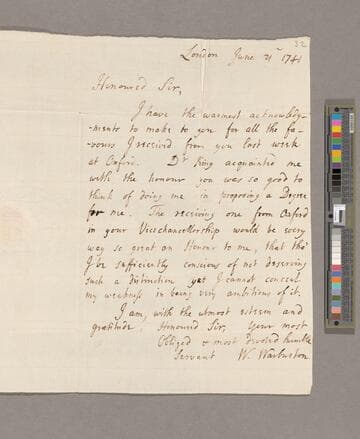 32
London June 21st 1741
Honoured Sir,
I have the warmest acknowledg-
-ments to make to you for all the fa-
vours I received from you last week
at Oxford. Dr King acquainted me
with the honour you was so good to
think of doing me in proposing a Degree
for me. The receiving one from Oxford
in your Vicechancellorship would be every
way so great an Honour to me, that tho'
I be sufficiently conscious of not deserving
such a distinction yet I cannot conceal
my weakness in being very ambitious of it.
I am, with the utmost esteem and
gratitude, Honoured Sir, your most
Obliged & most devoted humble
Servant W. Warburton